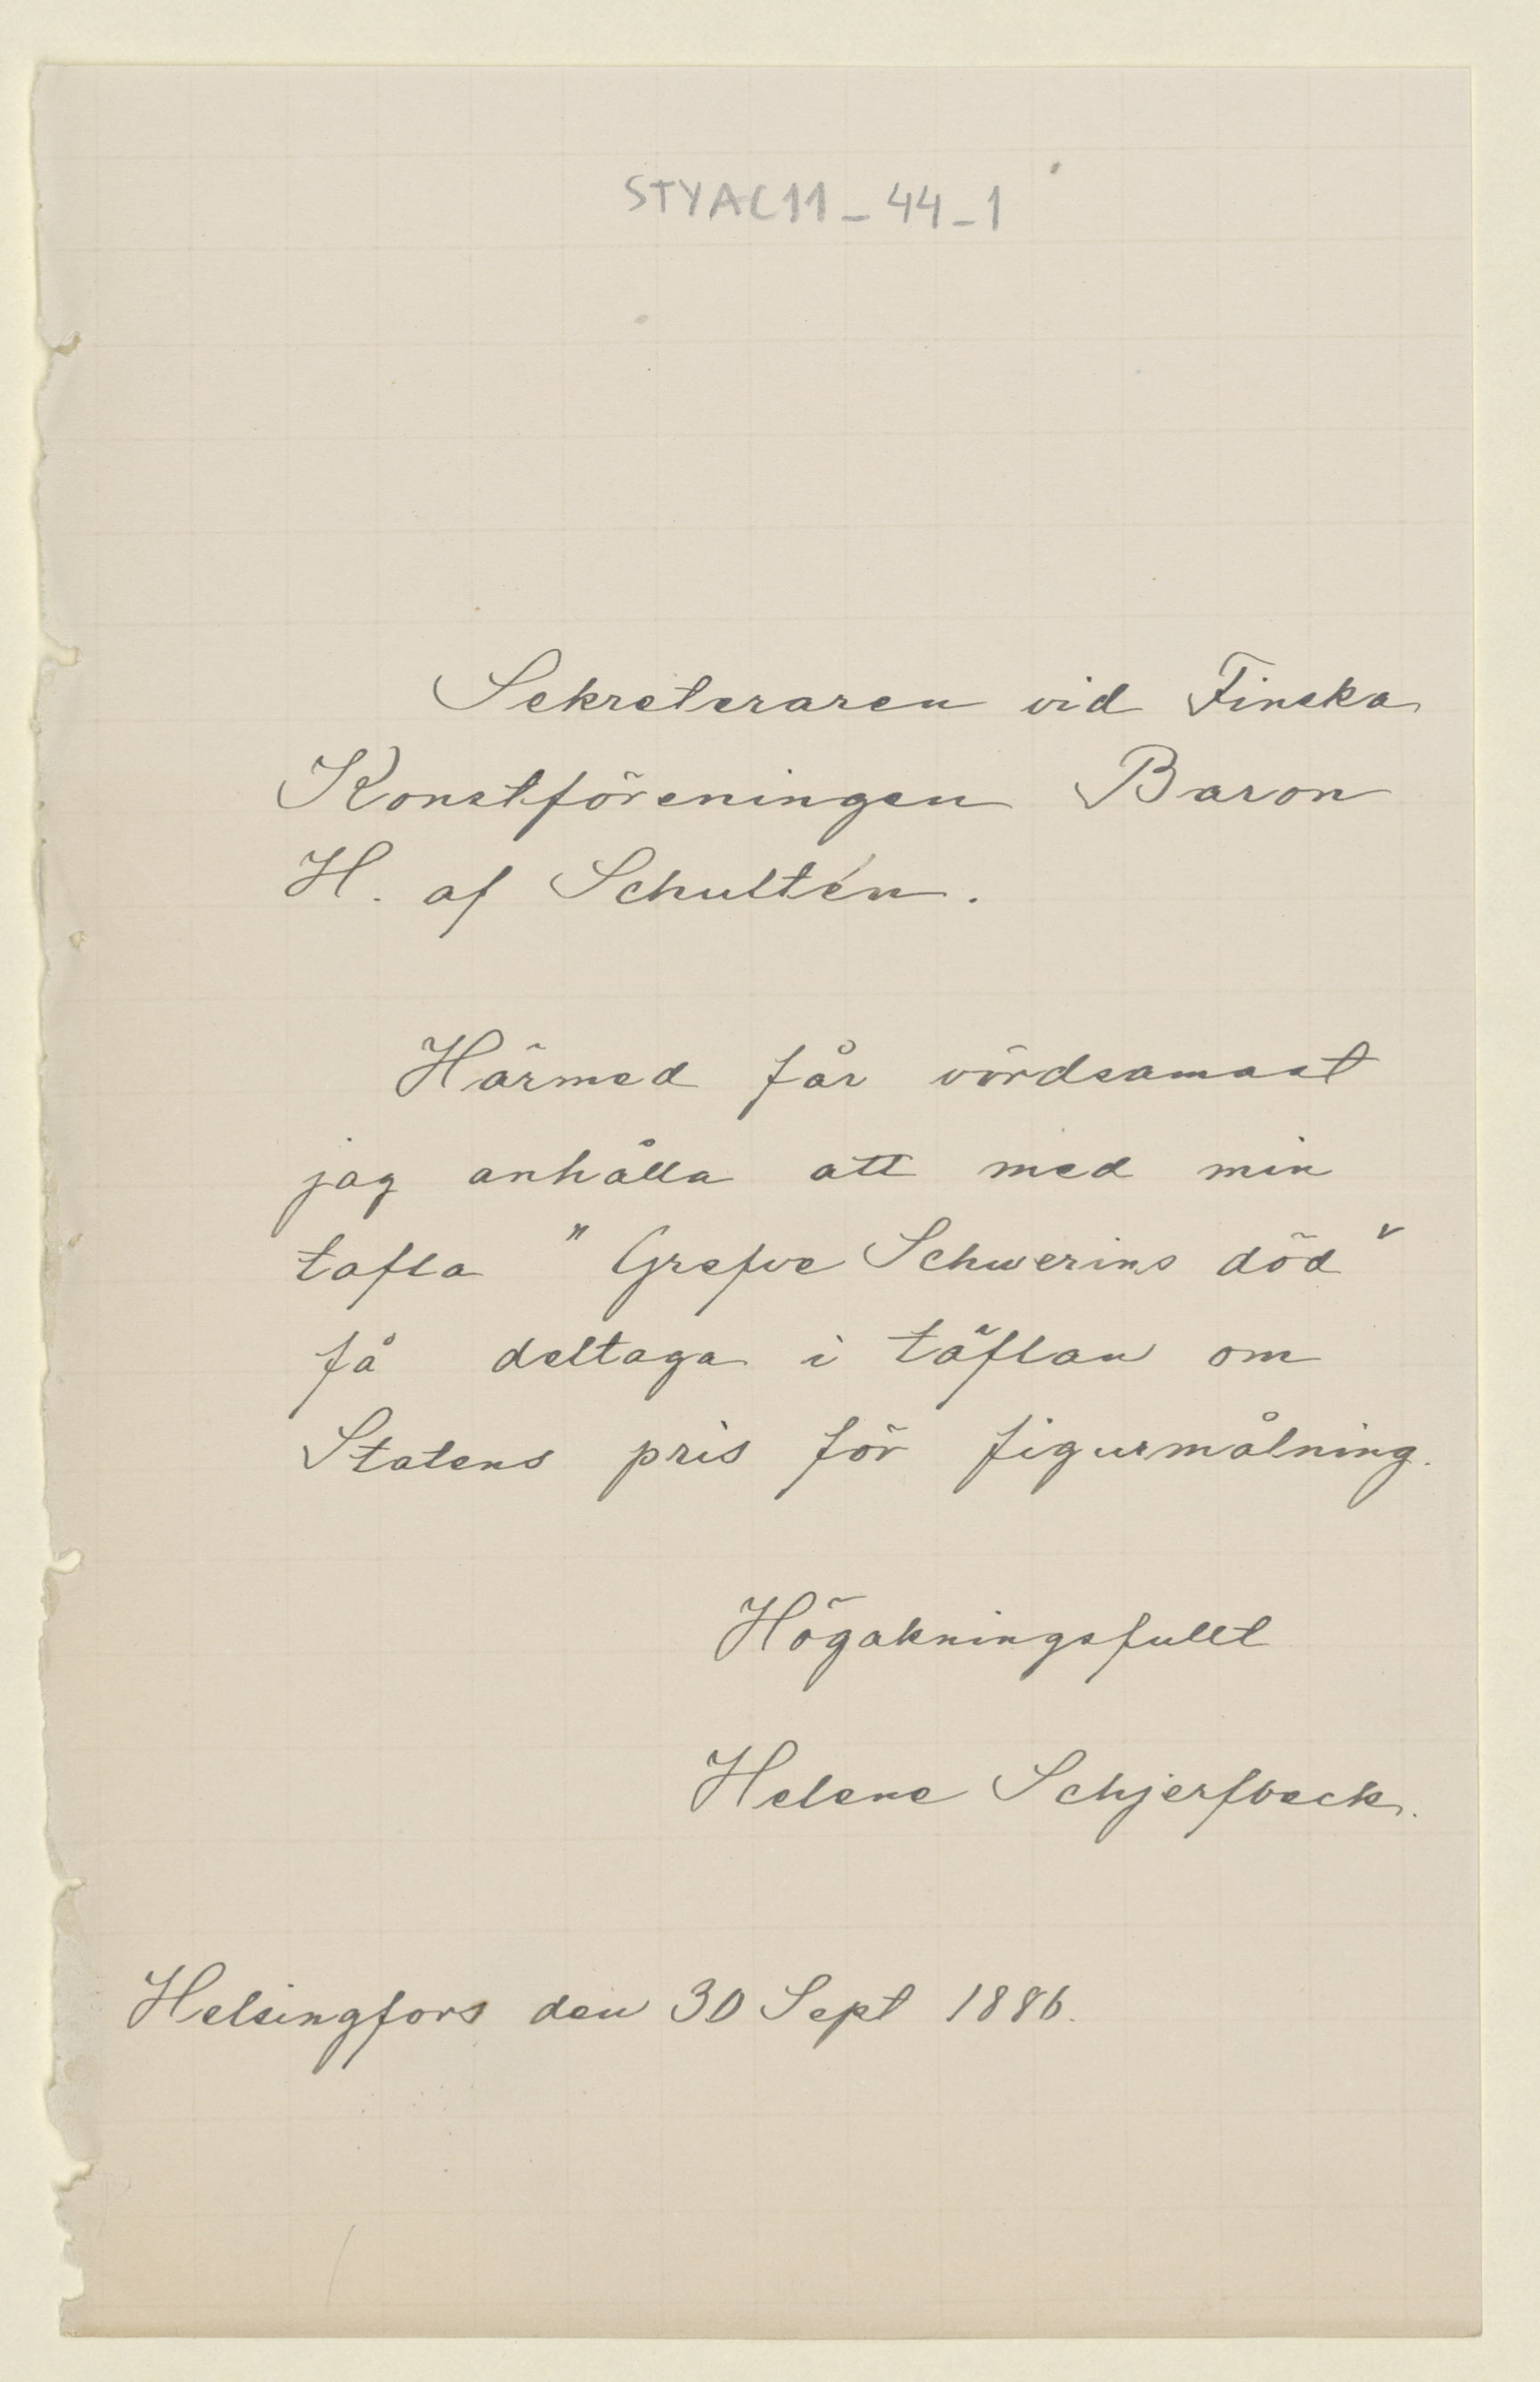 STYAC11_44_1
Sekreteraren vid Finska
Konstföreningen Baron
H. af Schultén.
Härmed får vördsamast
jag anhålla att med min
tafla "Grefve Schwerins död"
få deltaga i täflan om
Statens pris för figurmålning.
Högakningsfullt
Helene Schjerfbeck.
Helsingfors den 30 Sept 1886.